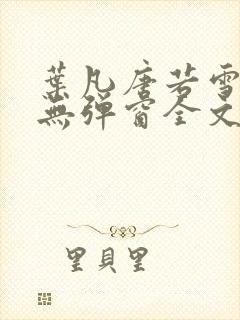 葉凡唐若雪
無彈窗全文
里貝里